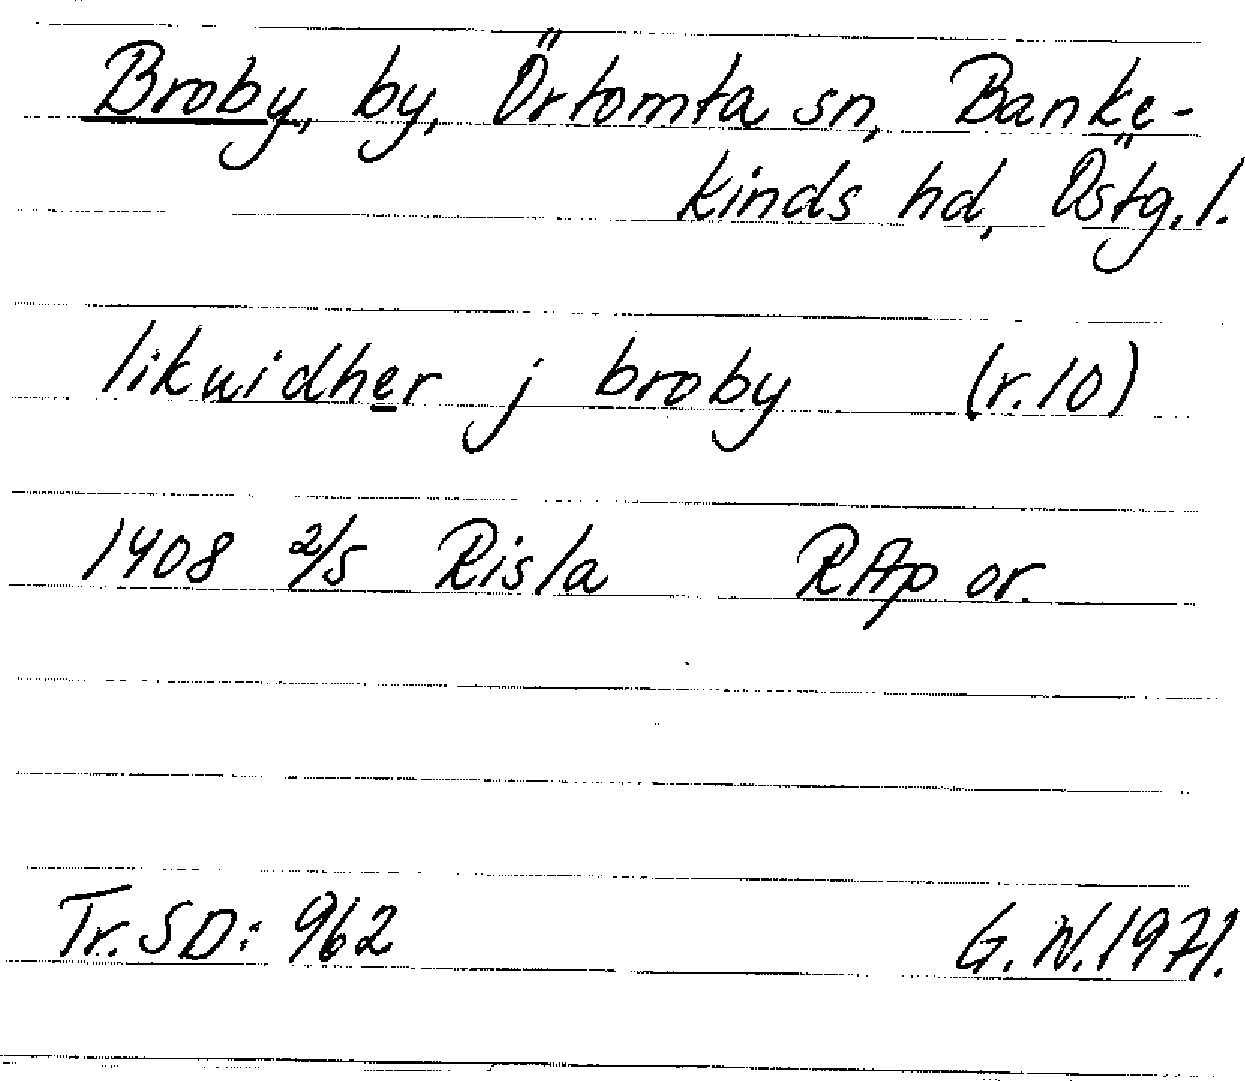 Broby, by, Örtomta sn, Banke-
kinds hd, Östg. l.
likwidher j broby (r.10)
1408 2/5 Risla RAp or.
Tr. SD: 962 G. W. 1971.